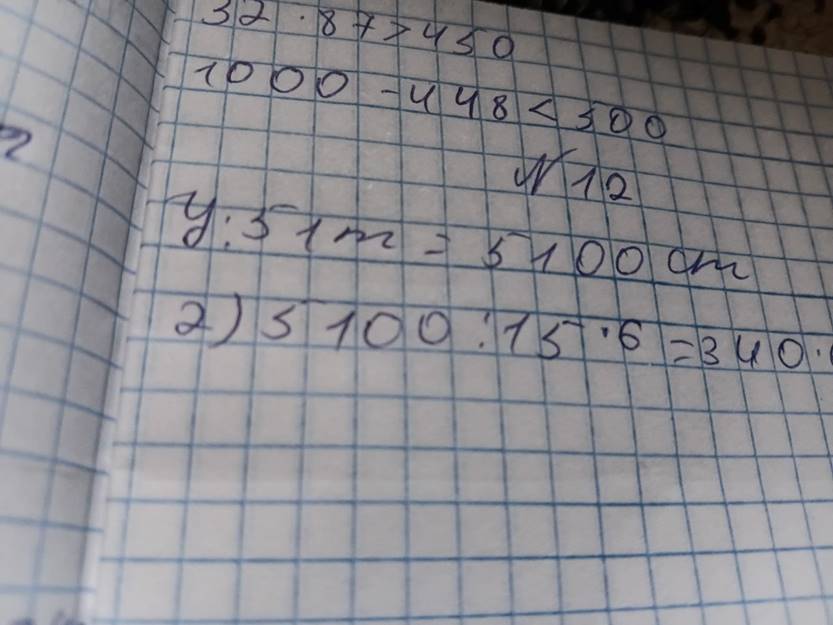 32 · 87 > 450
1000 - 448 < 500
N 12
y: 51 m = 5100 cm
2) 5100 : 15 · 6 = 340 ·